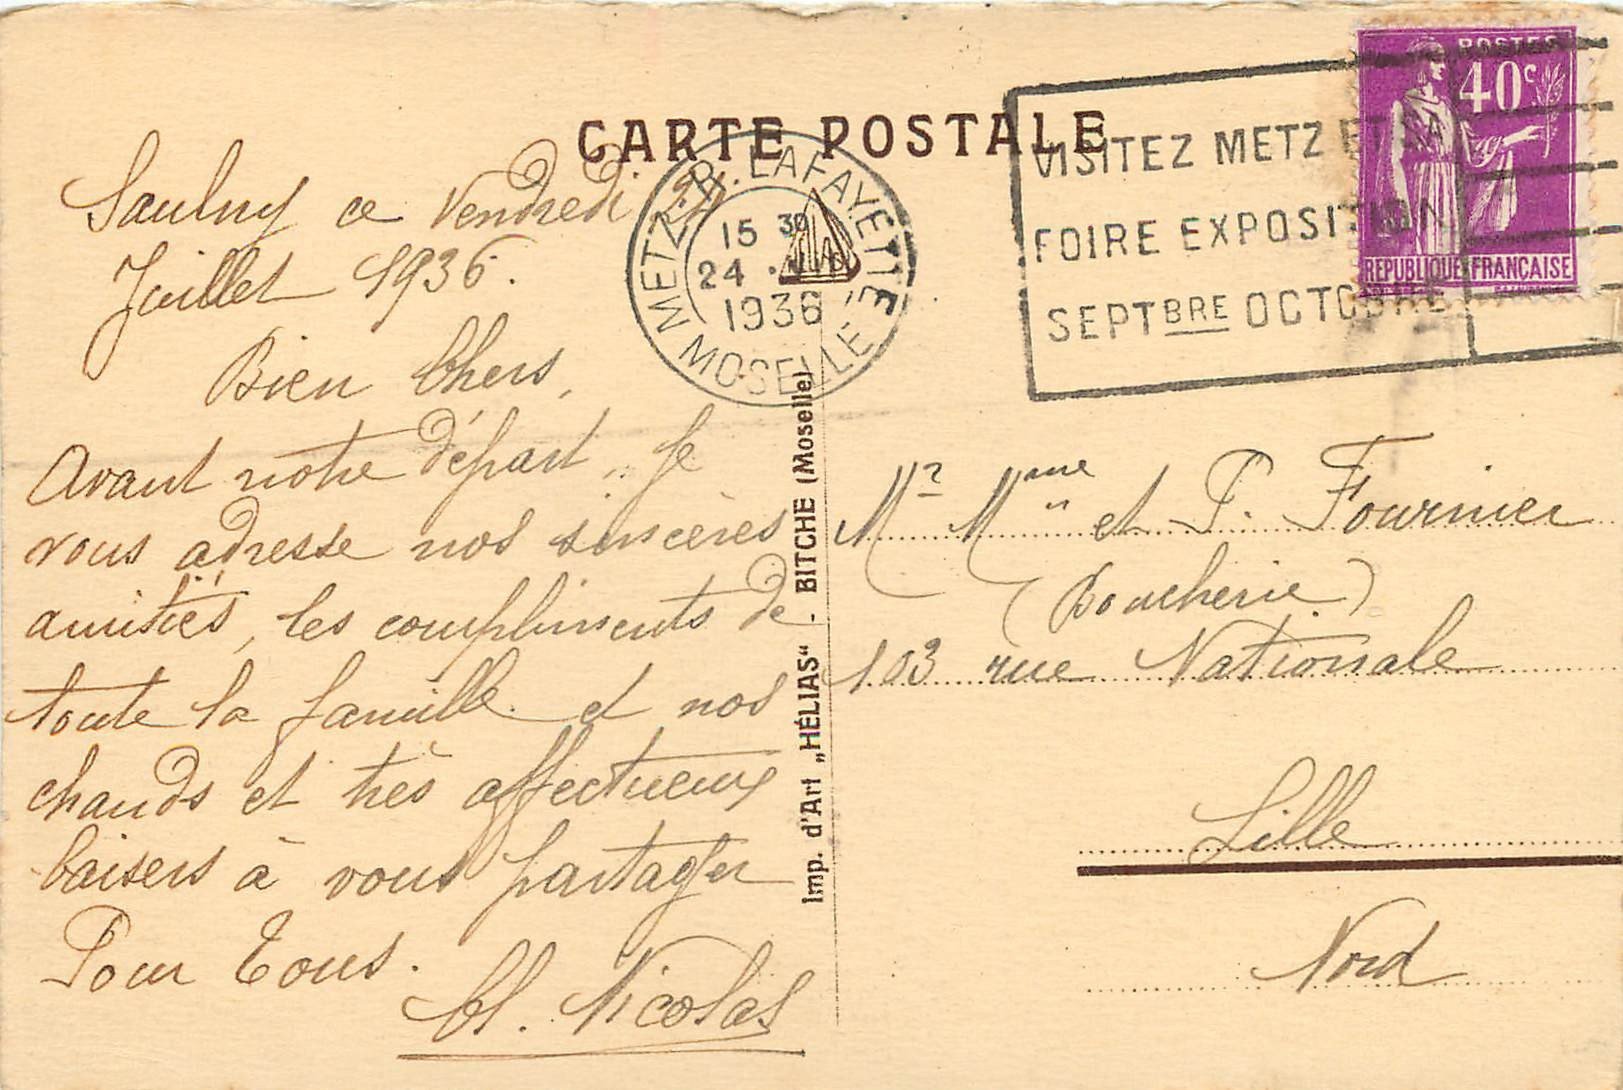 CARTE POSTALE
METZ. R. LAFAYETTE
15 30
24 .VII
1936
MOSELLE
VISITEZ METZ ET SA
FOIRE EXPOSITION
SEPTBRE OCTOBRE
POSTES
40c
REPUBLIQUE FRANÇAISE
Saulny ce Vendredi 24
Juillet 1936.
Bien Chers,
Avant notre départ, je
vous adresse nos sincères
amitiés, les compliments de
toute la famille et nos
chauds et très affectueux
baisers à vous partager
Pour Tous.
Ch. Nicolas
Imp. d'Art „HÉLIAS“ . BITCHE (Moselle)
Mr Mme et P. Fournier
(Boucherie)
103 rue Nationale
Lille
Nord